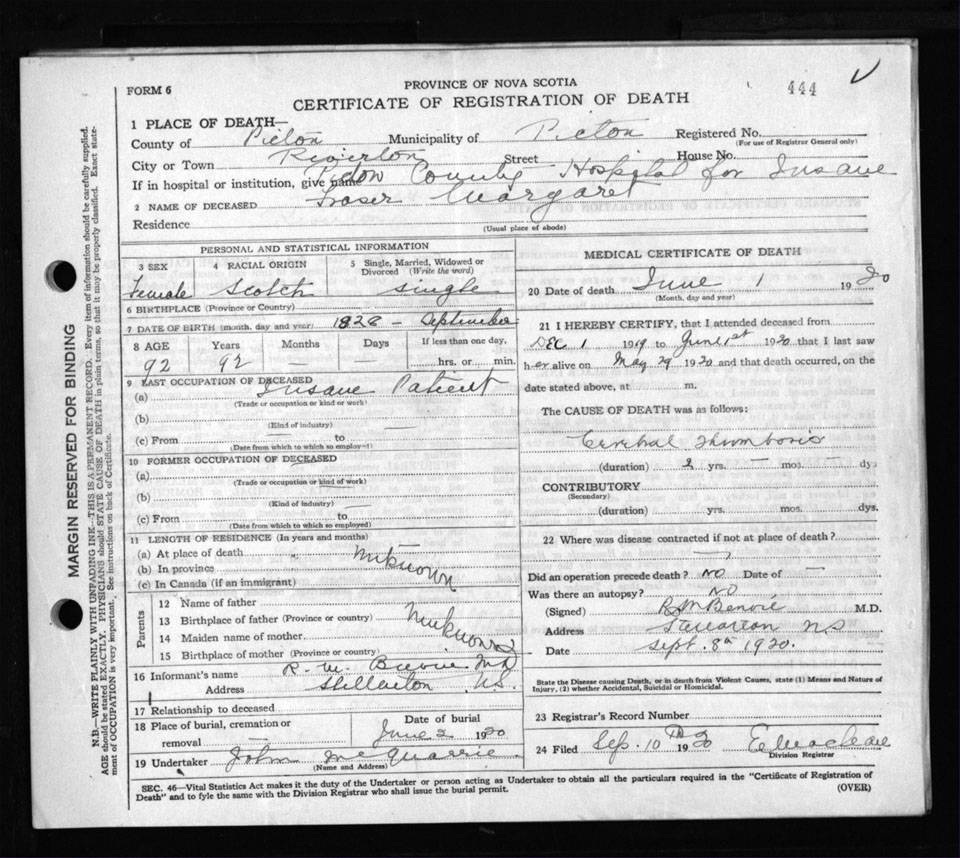 PROVINCE OF NOVA SCOTIA
FORM 6
444
CERTIFICATE OF REGISTRATION OF DEATH
1 PLACE OF DEATH—
County of Pictou Municipality of Pictou Registered No.
(For use of Registrar General only)
City or Town Riverton Street House No.
If in hospital or institution, give name Pictou County Hospital for Insane
2 NAME OF DECEASED Fraser Margaret
Residence
(Usual place of abode)
PERSONAL AND STATISTICAL INFORMATION
3 SEX 4 RACIAL ORIGIN 5 Single, Married, Widowed or Divorced (Write the word)
Female Scotch Single
6 BIRTHPLACE (Province or Country)
7 DATE OF BIRTH (month, day and year) 1828 – September
8 AGE Years Months Days If less than one day,
92 92 — — hrs. or min.
9 LAST OCCUPATION OF DECEASED
(a) Insane Patient
(Trade or occupation or kind or work)
(b)
(Kind of industry)
(c) From to
(Date from which to which so employed)
10 FORMER OCCUPATION OF DECEASED
(a)
(Trade or occupation or kind of work)
(b)
(Kind of industry)
(c) From to
(Date from which to which so employed)
11 LENGTH OF RESIDENCE (In years and months)
(a) At place of death
(b) In province unknown
(c) In Canada (if an immigrant)
Parents
12 Name of father
13 Birthplace of father (Province or country) unknown
14 Maiden name of mother
15 Birthplace of mother (Province or country)
16 Informant's name R. M. Benvie MD
Address Stellarton NS.
17 Relationship to deceased
18 Place of burial, cremation or removal — Date of burial June 2 1920
19 Undertaker John McQuarrie
(Name and Address)
MEDICAL CERTIFICATE OF DEATH
20 Date of death June 1 1920
(Month, day and year)
21 I HEREBY CERTIFY, that I attended deceased from
Dec 1 1919 to June 1st 1920 that I last saw
her alive on May 29 1920 and that death occurred, on the
date stated above, at m.
The CAUSE OF DEATH was as follows:
Cerebral Thrombosis
(duration) 2 yrs. — mos. — dys
CONTRIBUTORY
(Secondary)
(duration) yrs. mos. dys.
22 Where was disease contracted if not at place of death?
—
Did an operation precede death? NO Date of —
Was there an autopsy? NO
(Signed) R M Benvie M.D.
Address Stellarton NS
Date Sept. 8th 1920.
State the Disease causing Death, or in death from Violent Causes, state (1) Means and Nature of
Injury, (2) whether Accidental, Suicidal or Homicidal.
23 Registrar's Record Number
24 Filed Sep. 10TH 1920 E Maclean
Division Registrar
SEC. 46—Vital Statistics Act makes it the duty of the Undertaker or person acting as Undertaker to obtain all the particulars required in the "Certificate of Registration of
Death" and to fyle the same with the Division Registrar who shall issue the burial permit.
(OVER)
MARGIN RESERVED FOR BINDING
N.B.—WRITE PLAINLY WITH UNFADING INK—THIS IS A PERMANENT RECORD. Every item of information should be carefully supplied.
AGE should be stated EXACTLY. PHYSICIANS should STATE CAUSE OF DEATH in plain terms, so that it may be properly classified. Exact state-
ment of OCCUPATION is very important. See instructions on back of Certificate.